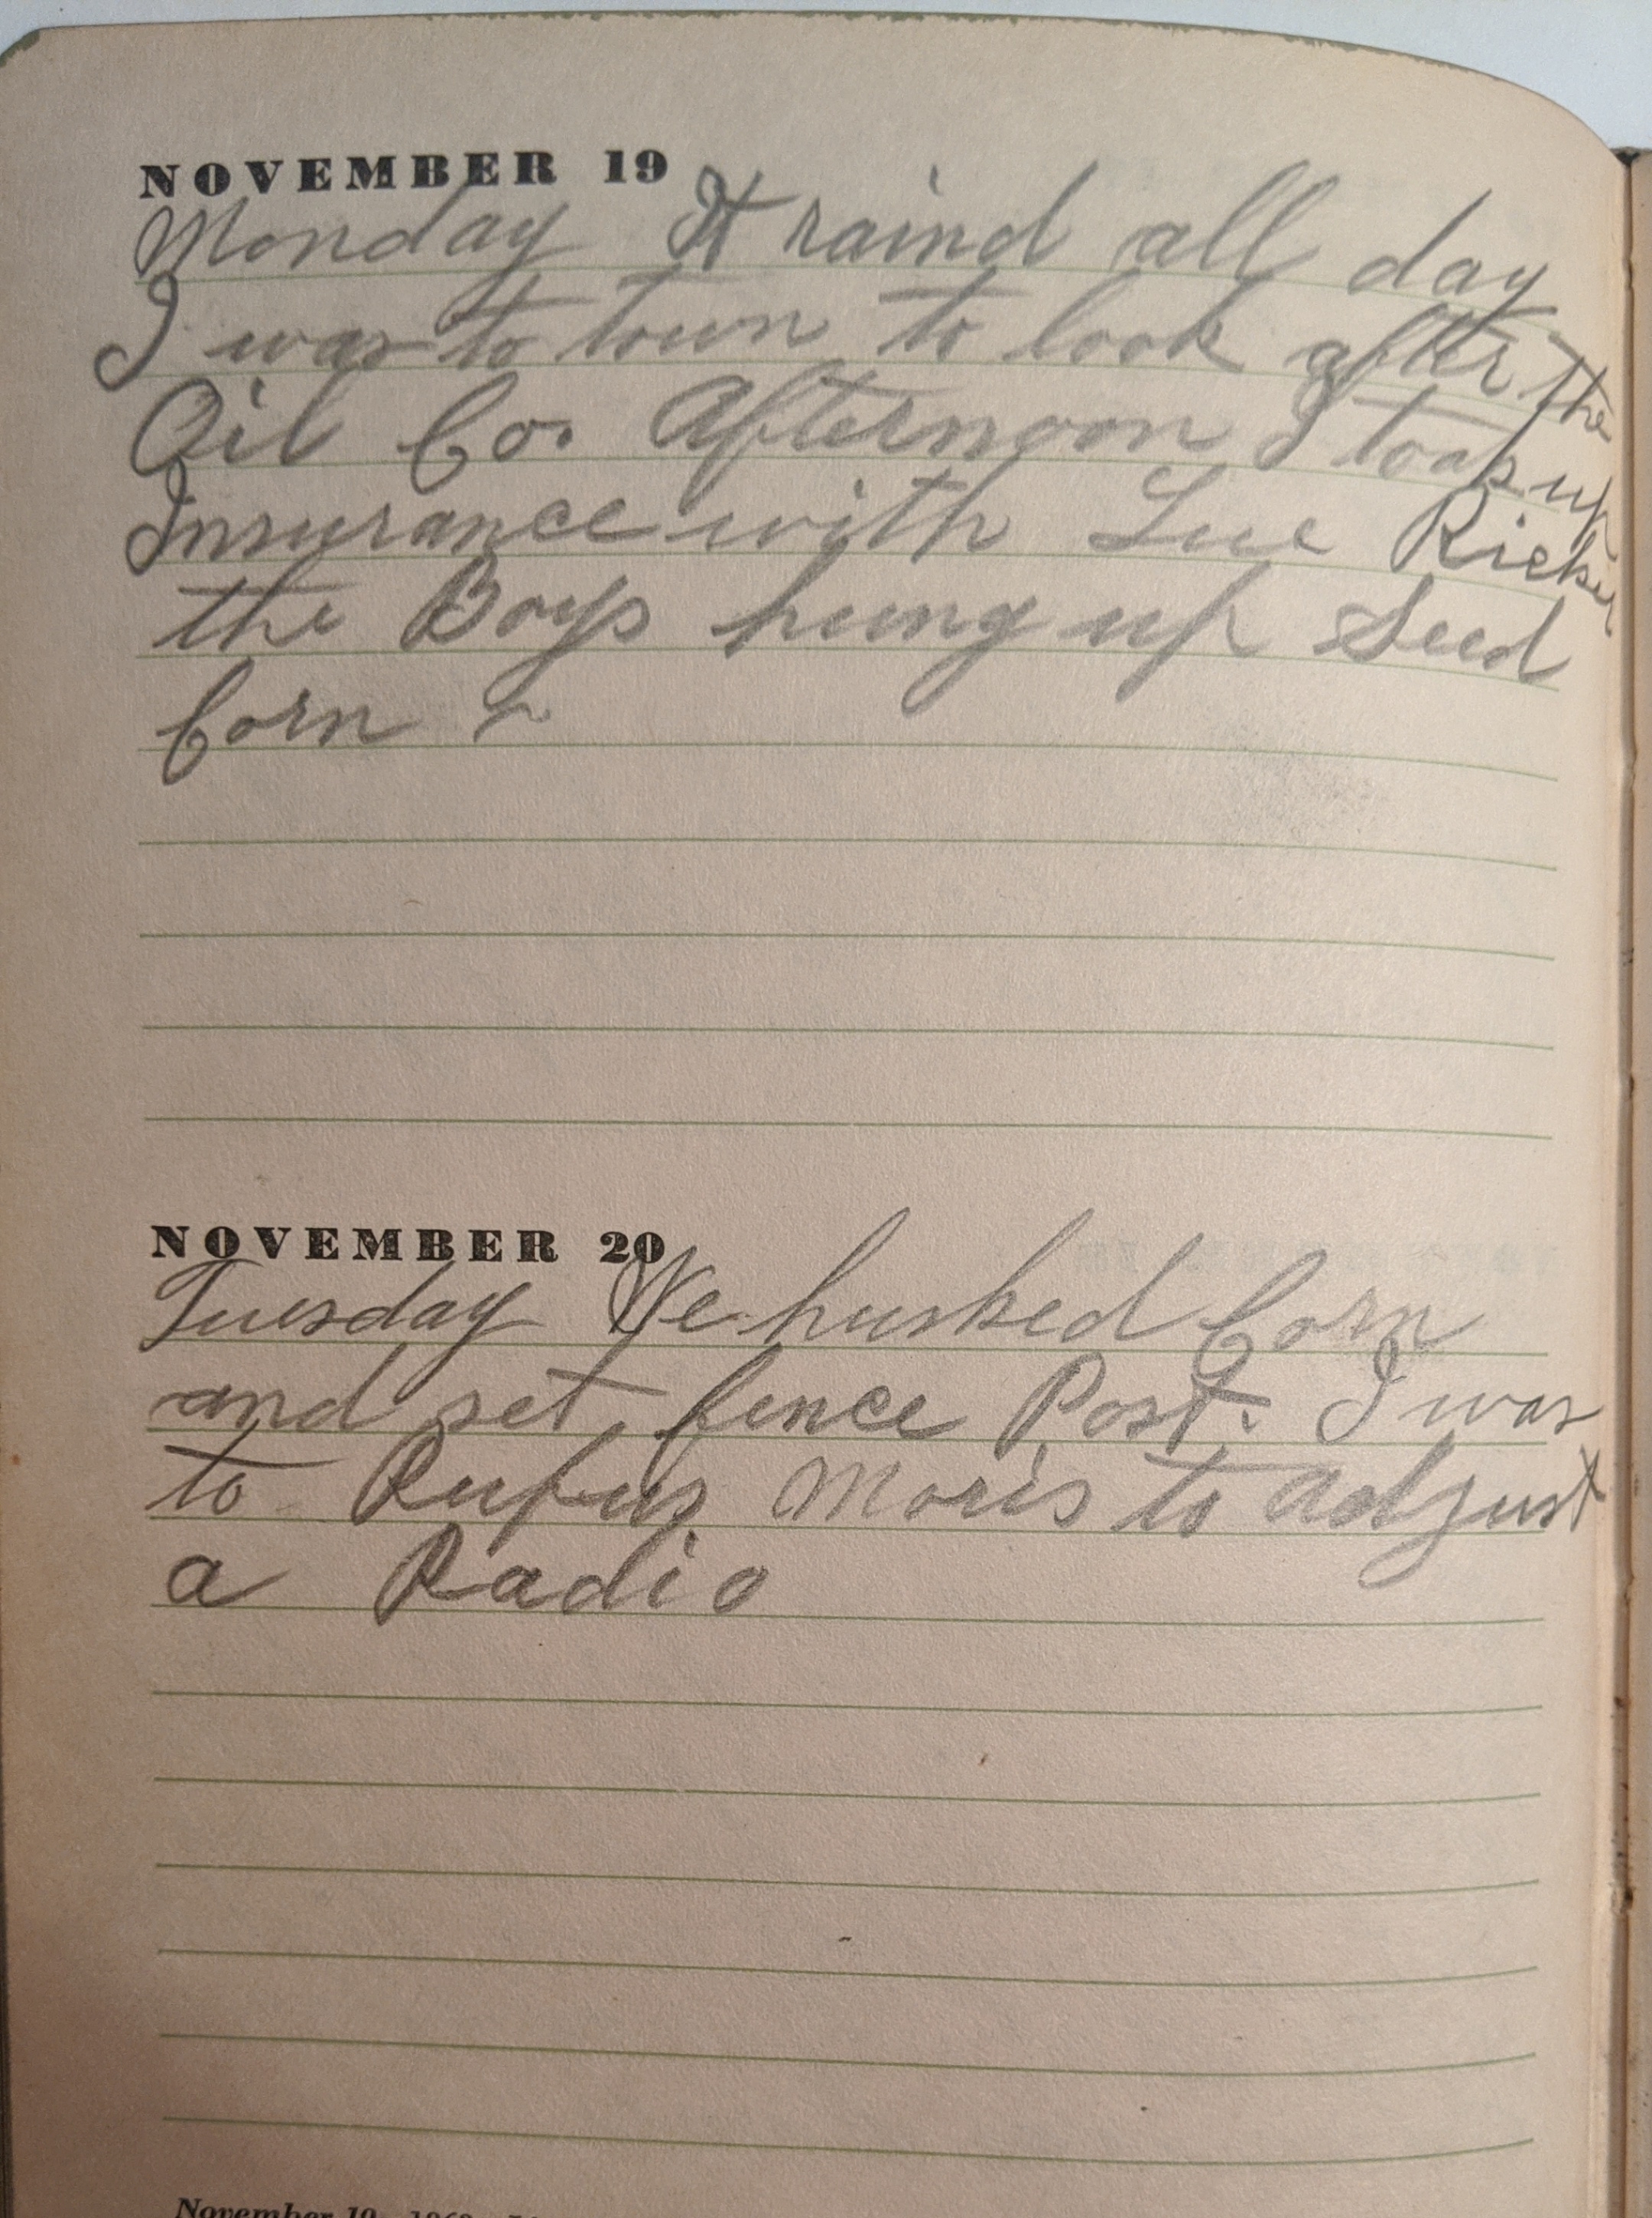 NOVEMBER 19
Monday It raind all day
I was to town to look after the
Oil Co. Afternoon I took up
Insurance with Lue Ricker
the Boys hung up Seed
Corn
NOVEMBER 20
Tuesday We husked Corn
and set fence Post. I was
to Rufus Moris to adjust
a Radio
November 19